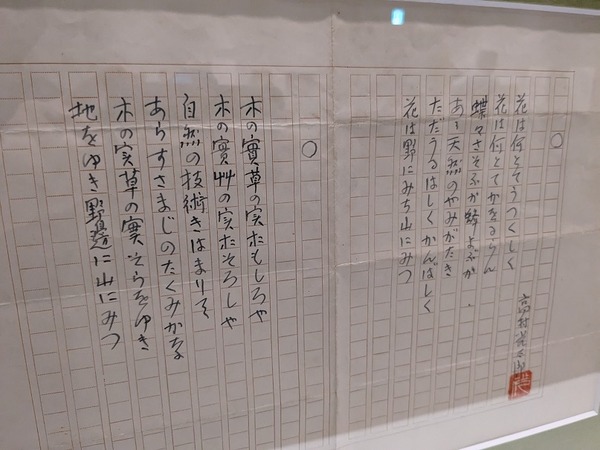 ○
高村光太郎
花は何とてうつくしく
花は何とてかをるらん
蝶をさそふか蜂よぶか、
あゝ天然のやみがたき
ただうるはしくかんばしく
花は野にみち山にみつ
○
木の實草の実おもしろや
木の實艸の実おそろしや
自然の技術きはまりて
あらすさまじのたくみかな
木の実草の實そらをゆき
地をゆき野邊に山にみつ